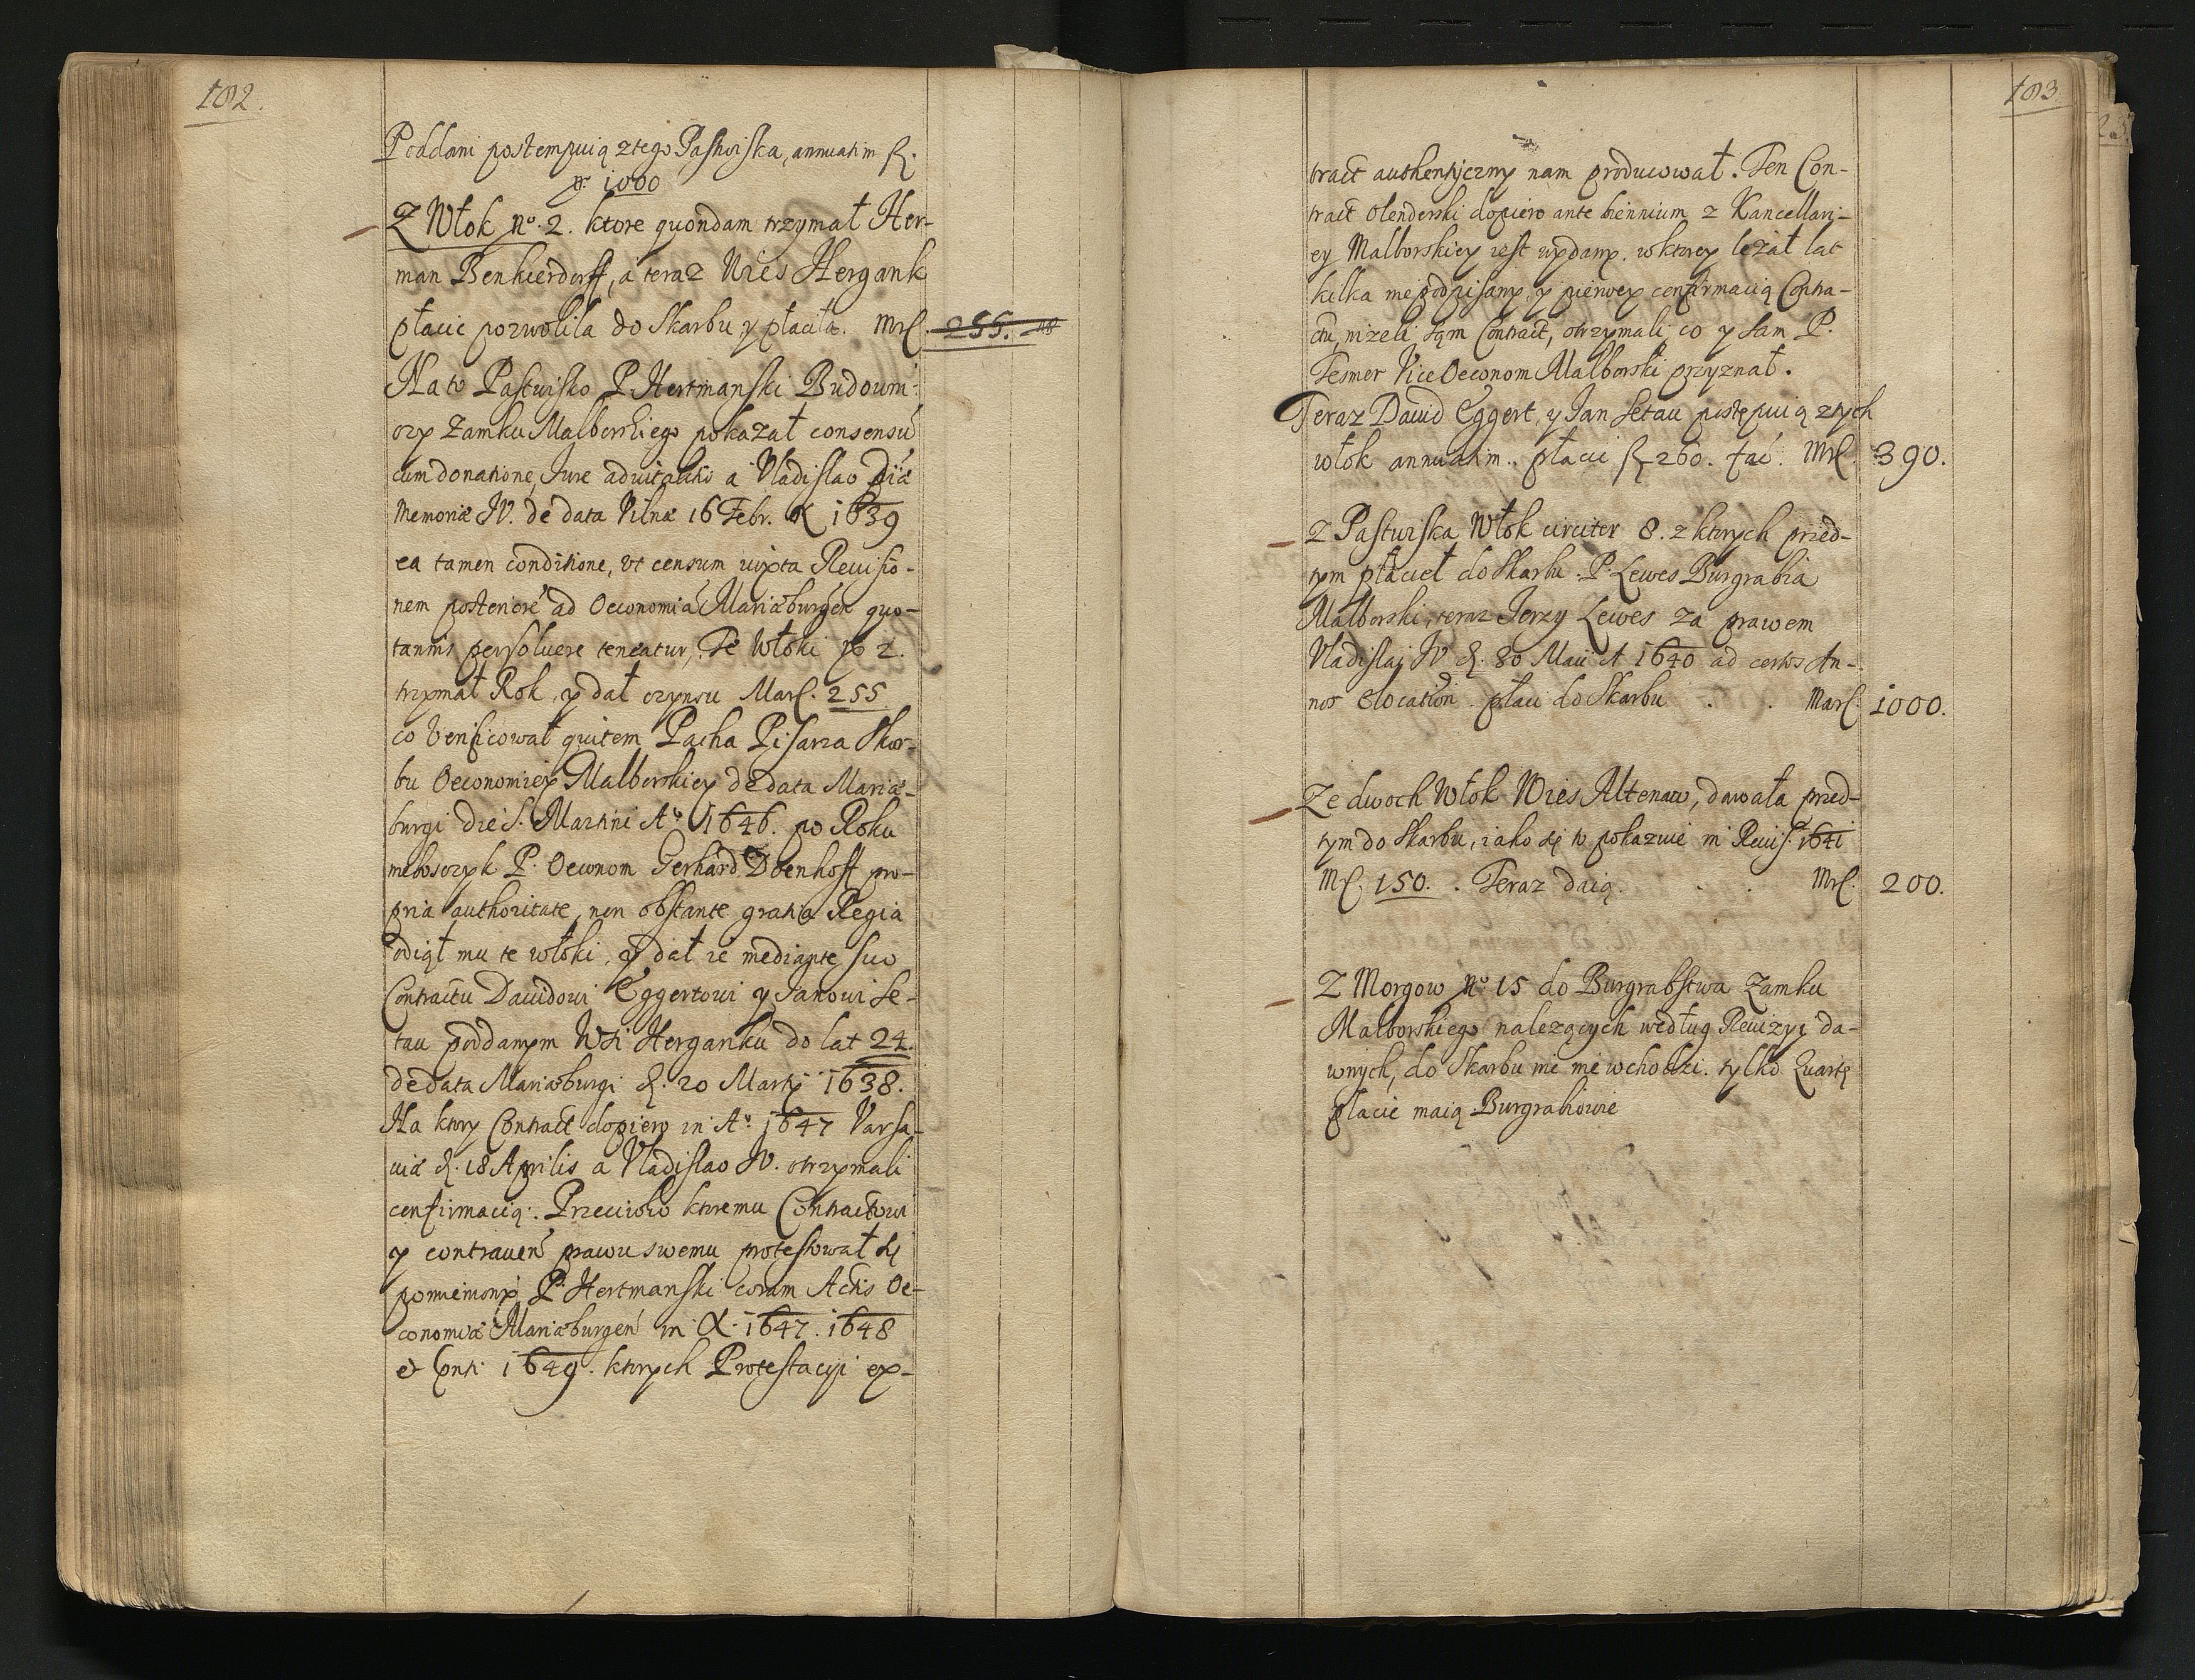 102.
Poddani postempuią z tego Pastwiska, annuatim fl.
n. 1000
Z Włok No. 2. ktore quondam trzymał Her-
man Benkierdorff, a teraz Wies Hergank
płacic pozwolila do Skarbu y płaciła. Mrl. 255.
Na to Pastwisko P. Hertmanski Budowni-
czy Zamku Malborskiego pokazał consensu
cum donatione, Jure aduitalitio a Vladislao piæ
Memoriæ IV. de data Vilnæ 16 Febr. 1639
ea tamen conditione, vt censum iuxta Reuisio-
nem posteriore ad Oeconomia Mariæburgen quo-
tannis persoluere teneatur, Te Włoki 2.
trzymał Rok, y dał czynszu Marl. 255
co verificował quitem Pacha Pisarza Skar-
bu Oeconomiey Malborskiey de data Mariæ-
burgi die S. Martini Ao. 1646. po Roku
nieboszczyk P. Oeconom Gerhard Döenhoff pro-
pria authoritate, non obstante gratia Regia
odiął mu te włoki, y dał ie mediante suo
Contractu Dauidowi Eggertowi y Janowi Se-
tau poddanym Wsi Herganku do lat 24.
de data Mariæburgi d. 20 Martij 1638.
Na ktory Contract dopiero in Ao. 1647 Varsa-
uiæ d. 18 Aprilis a Vladislao IV. otrzymali
confirmacią. Przeciwko ktoremu Contractowi
y contrauen prawu swemu protestował się
pomieniony P. Hertmanski coram Actis Oe-
conomiæ Mariæburgen in A. 1647. 1648
et 1649. ktorych Protestacyi ex-
103.
tract authentyczny nam producował. Ten Con-
tract Olenderski dopiero ante biennium z Kancellari-
ey Malborskiey iest wydany. w ktorey leżał lat
kilka nie podpisany, y pierwey confirmacią Contra-
ctu, nizeli sam Contract, otrzymali, co y sam P.
Tesmer Vice Oeconom Malborski przyznał.
Teraz Dauid Eggert, y Jan Setau postępuią z tych
włok annuatim. płacic fl 260. fac. Mrl. 390.
Z Pastwiska Włok circiter 8. z ktorych przed-
tym płacieł do Skarbu. P. Lewes Burgrabia
Malborski, teraz Jerzy Lewes za prawem
Vladislaj IV d. 30 Maii A 1640 ad certos An-
nos Elocation. płaci do Skarbu . . Marl. 1000.
Ze dwoch Włok Wies Altenaw, dawała przed-
tym do Skarbu, iako się to pokazuie in Reuis. 1641
Mrl. 150. . Teraz daią. . . Mrl. 200.
Z Morgow No 15 do Burgrabstwa Zamku
Malborskiego nalezących według Reuizyi da-
wnych, do Skarbu nic nie wchodzi. tylko Quartę
płacic maią Burgrabiowie